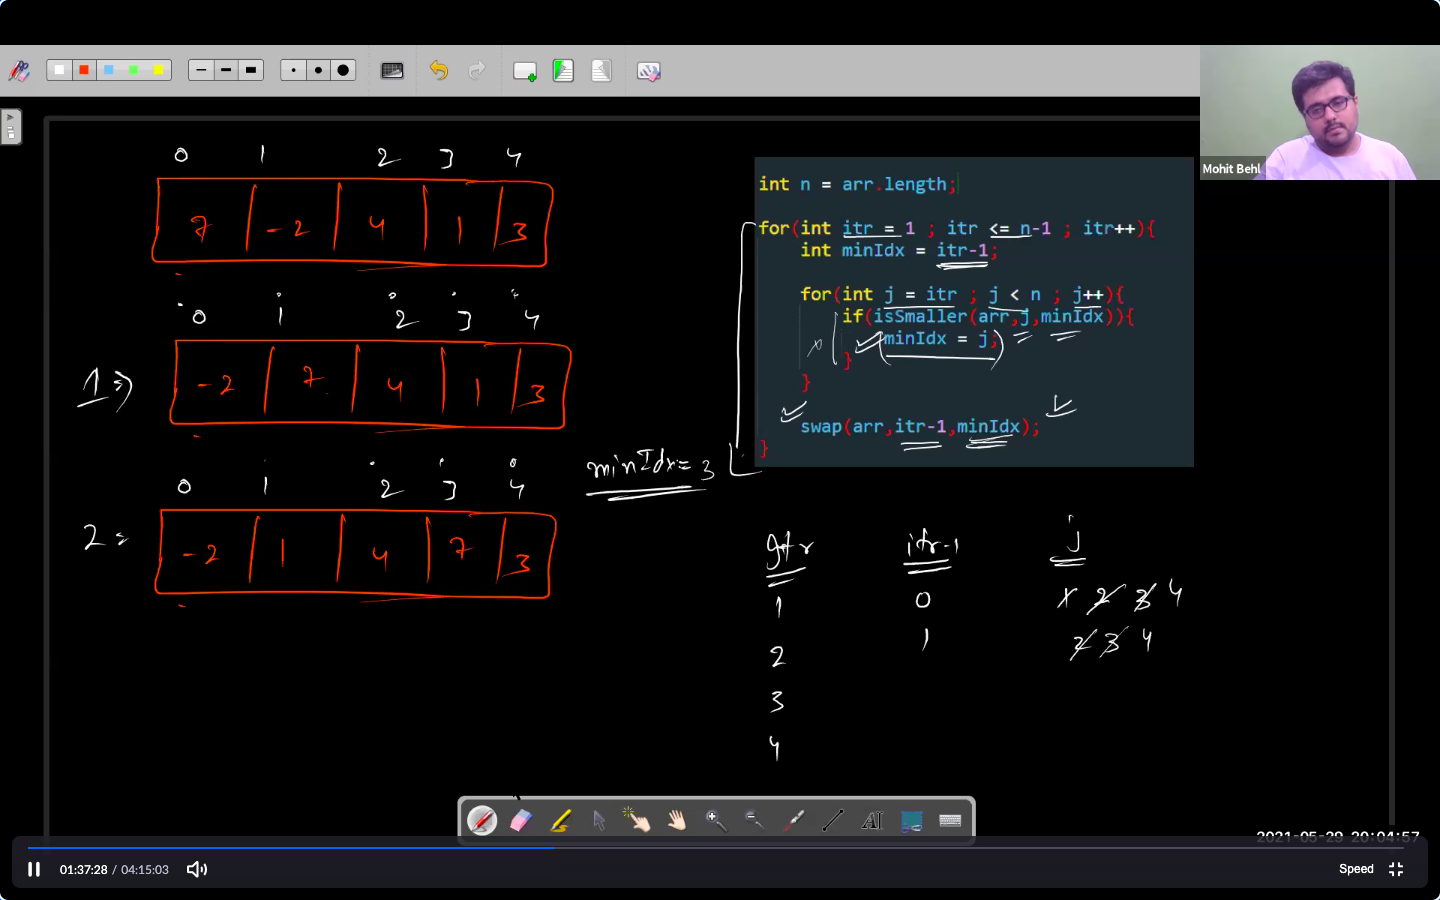 Mohit Behl
0 1 2 3 4
7 -2 4 1 3
0 1 2 3 4
1 => -2 7 4 1 3
0 1 2 3 4
2 = -2 1 4 7 3
minIdx = 3
int n = arr.length;
for(int itr = 1 ; itr <= n-1 ; itr++){
int minIdx = itr-1;
for(int j = itr ; j < n ; j++){
if(isSmaller(arr,j,minIdx)){
minIdx = j;
}
}
swap(arr,itr-1,minIdx);
}
itr itr-1 j
1 0 1 2 3 4
2 1 2 3 4
3
4
AI
2021-05-29 20:04:57
01:37:28 / 04:15:03
Speed